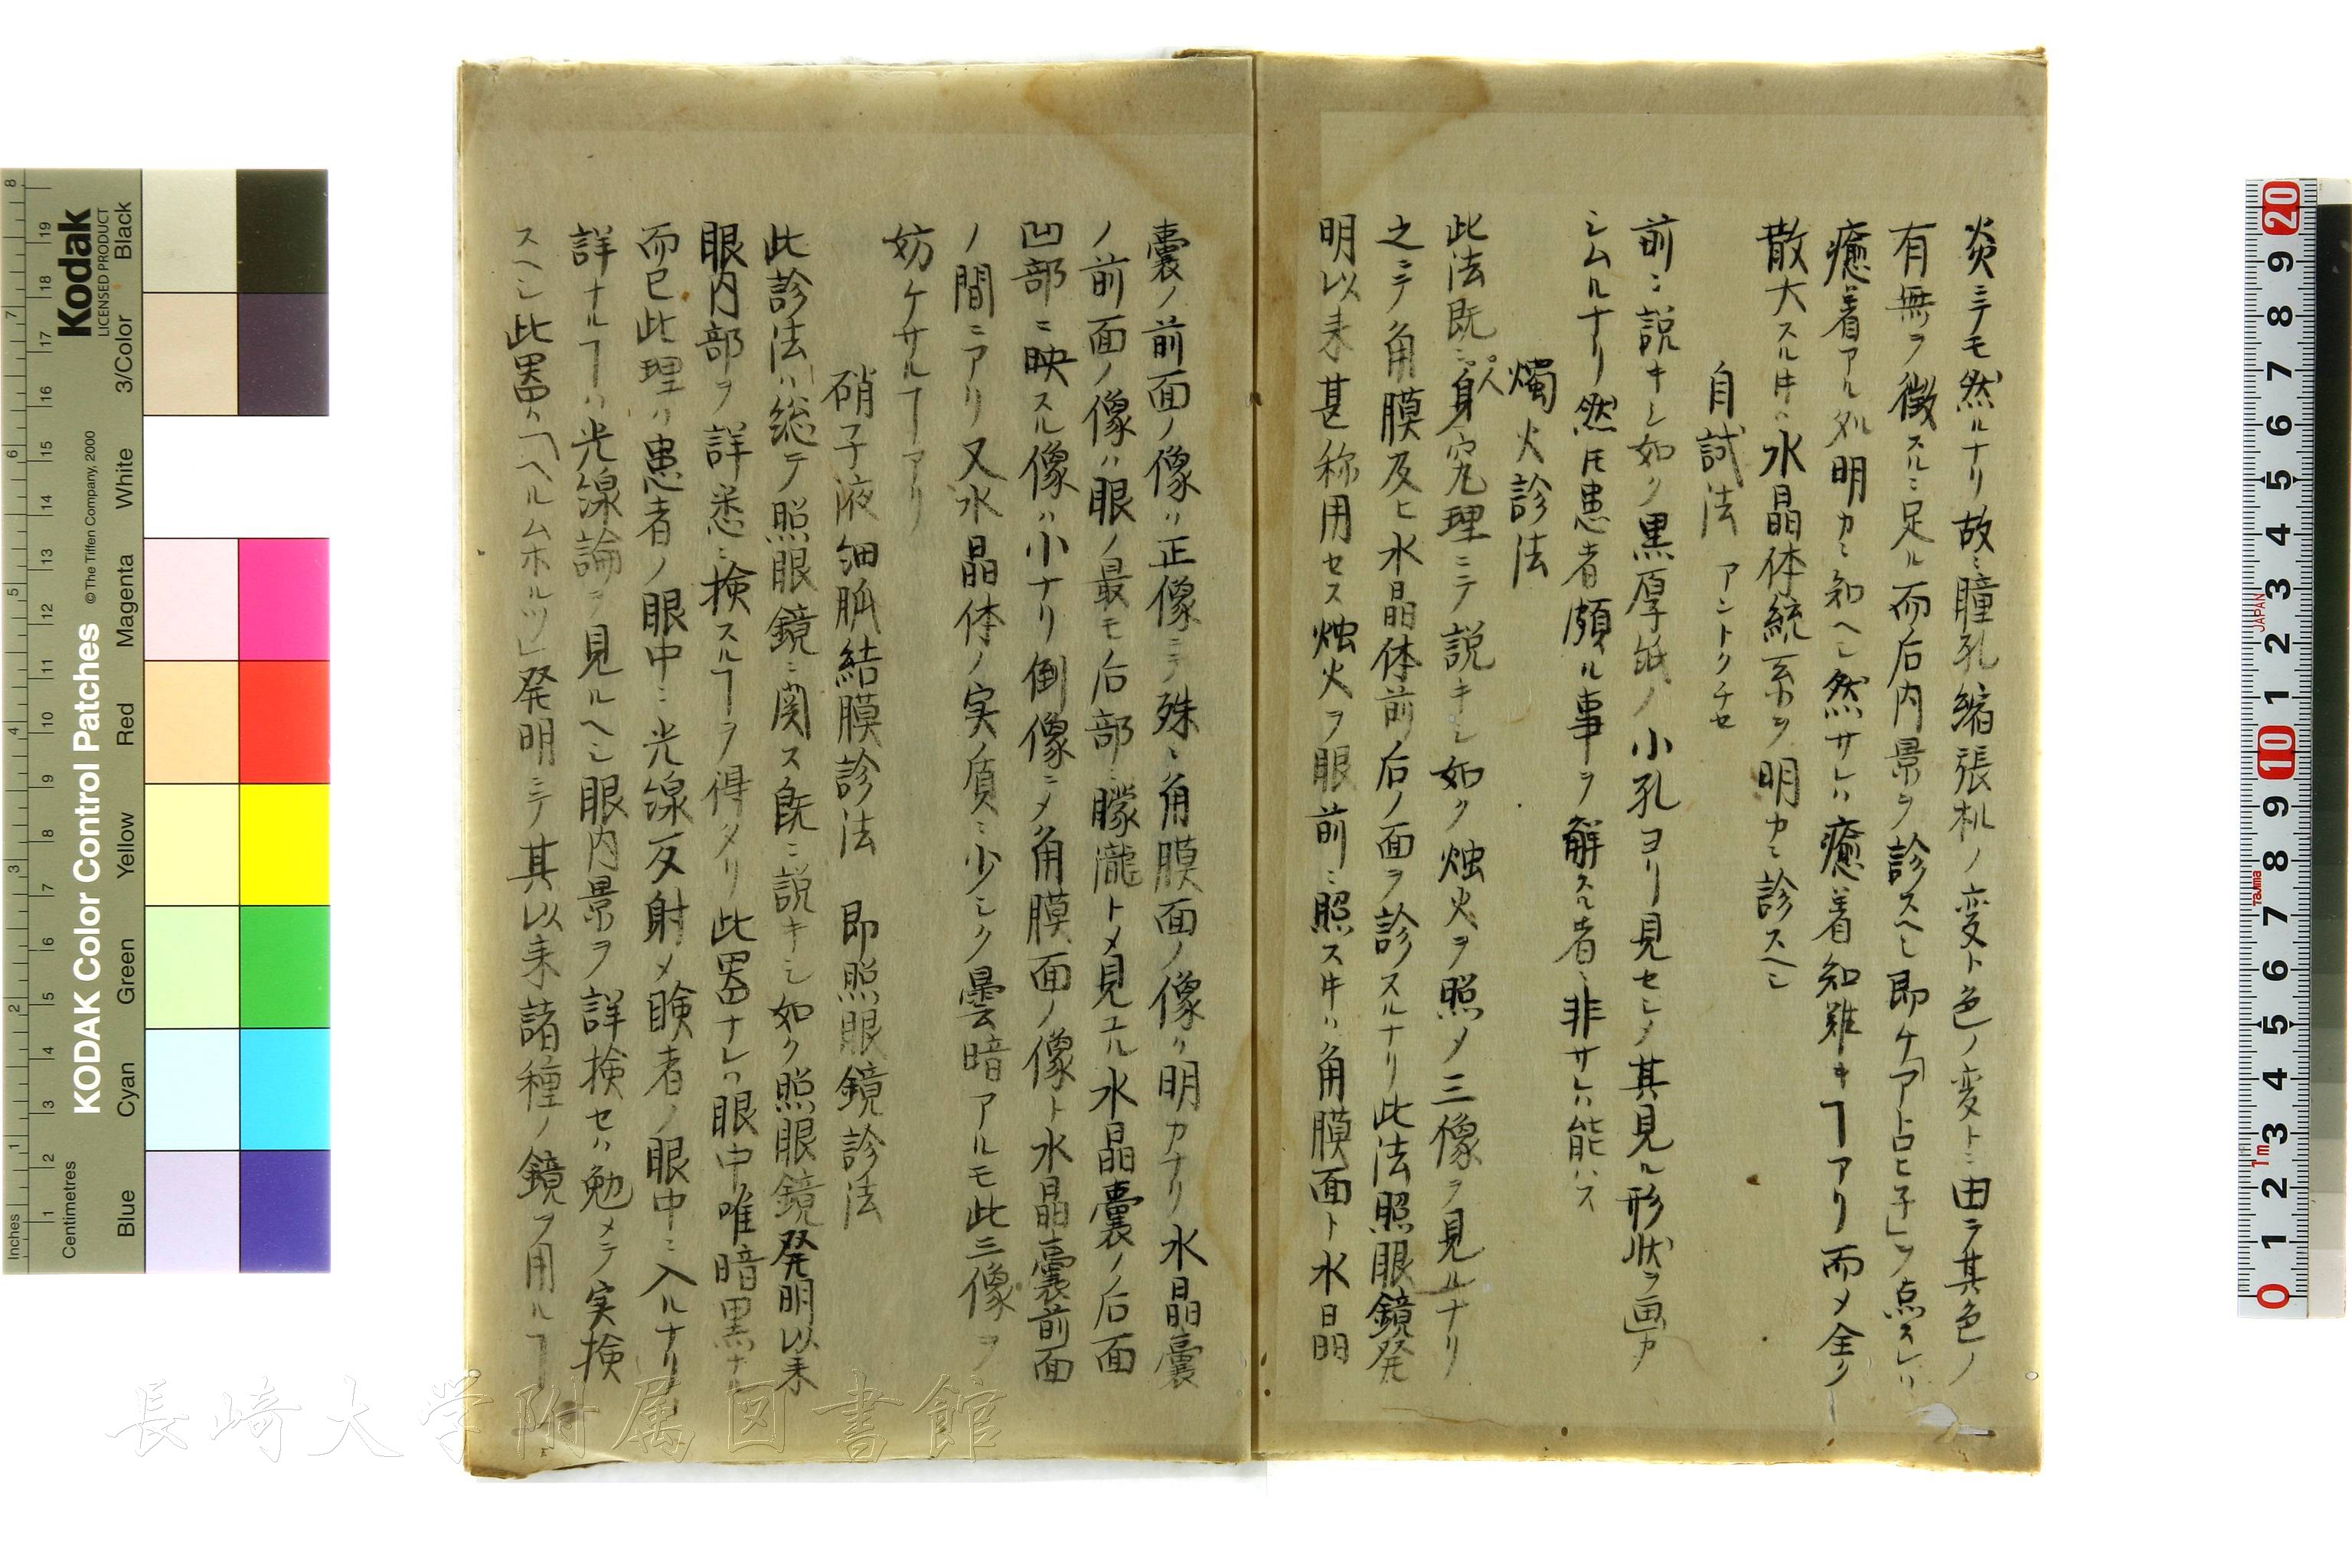 炎ニテモ然ルナリ故ニ瞳孔縮張机ノ変ト色ノ変トニ由テ其色ノ
有無ヲ徴スルニ足ル而后内景ヲ診スヘシ即ケ「アトロヒ子」ヲ点スレハ
癒着アル処明カニ知ヘシ然サレハ癒着知難キヿアリ而メ全ク
散大スル𪜈ハ水晶体統系ヲ明カニ診スヘシ
自試法 アントクチセ
前ニ説キシ如ク黒厚紙ノ小孔ヨリ見セシメ其見ル形状ヲ画カ
シムルナリ然𪜈患者頗ル事ヲ解スル者ニ非サレハ能ハス
燭火診法
此法既ニ人身究理ニテ説キシ如ク烛火ヲ照メ三像ヲ見ルナリ
之ニテ角膜及ヒ水晶体前后ノ面ヲ診スルナリ此法照眼鏡発
明以来甚称用セス烛火ヲ眼前ニ照ス𪜈ハ角膜面ト水晶
囊ノ前面ノ像ハ正像ニテ殊ニ角膜面ノ像ハ明カナリ水晶囊
ノ前面ノ像ハ眼ノ最モ后部ニ朦朧トメ見ユル水晶囊ノ后面
凹部ニ映スル像ハ小ナリ倒像ニメ角膜面ノ像ト水晶囊前面
ノ間ニアリ又水晶体ノ実質ニ少シク曇暗アルモ此三像ヲ
妨ケサルヿアリ
硝子液細胍結膜診法 即照眼鏡診法
此診法ハ総テ照眼鏡ニ関ス既ニ説キシ如ク照眼鏡発明以来
眼内部ヲ詳悉ニ検スルヿヲ得タリ此器ナレハ眼中唯暗黒ナル
而已此理ハ患者ノ眼中ニ光線反射メ験者ノ眼中ニ入ルナリ
詳ナルヿハ光線論ヲ見ルヘシ眼内景ヲ詳検セハ勉メテ実検
スヘシ此器ハ「ヘルムホルツ」発明ニテ其以来諸種ノ鏡ヲ用ルヿ
Kodak
LICENSED PRODUCT
KODAK Color Control Patches
© The Tiffen Company, 2000
Inches
Centimetres
Blue
Cyan
Green
Yellow
Red
Magenta
White
3/Color
Black
長崎大学附属図書館